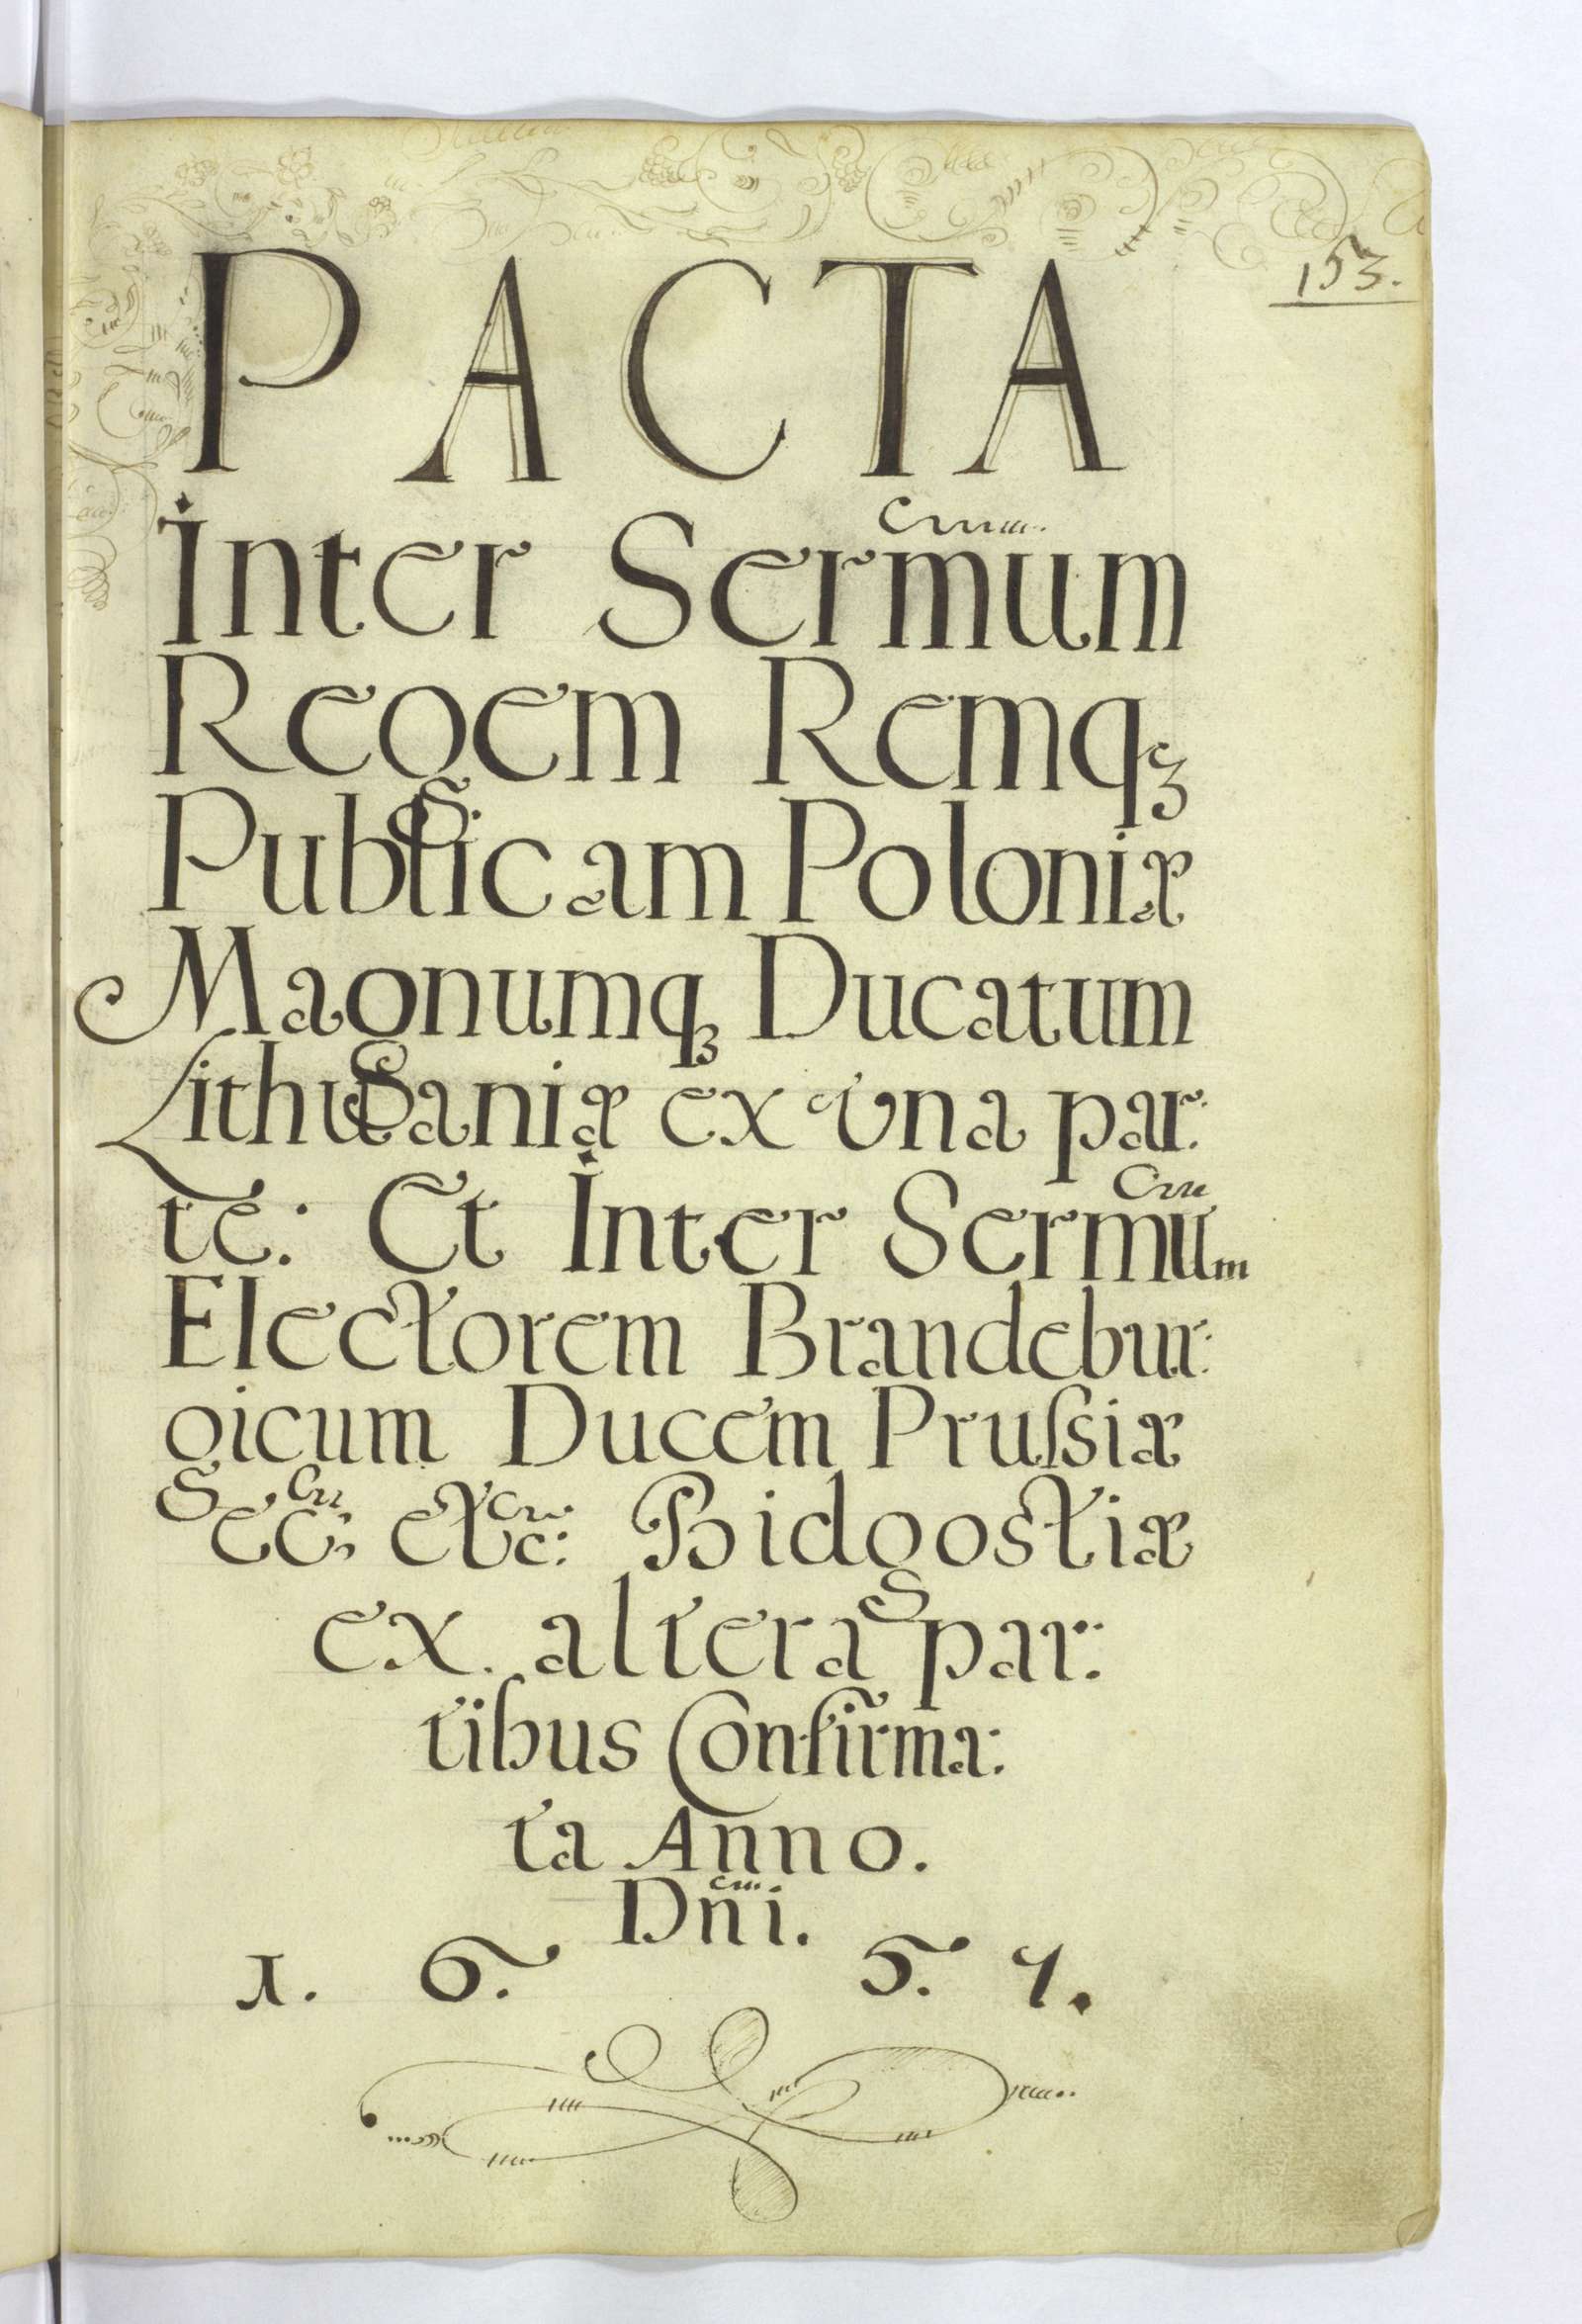 153.
PACTA
Inter Sermum
Regem Remqꝫ
Publicam Poloniæ
Magnumqꝫ Ducatum
Lithuaniæ ex vna par:
te: Et Inter Sermum
Electorem Brandebur:
gicum Ducem Prussiæ
ec: etc: Bidgostiæ
ex altera par:
tibus Confirma:
ta Anno.
Dñi.
1. 6. 5. 7.